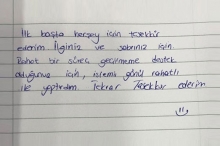 İlk başta herşey için teşekkür
ederim İlginiz ve sabrınız için
Rahat bir süreç geçirmeme destek
olduğunuz için, işlemi gönül rahatlı
ile yaptırdım Tekrar Teşekkür ederim